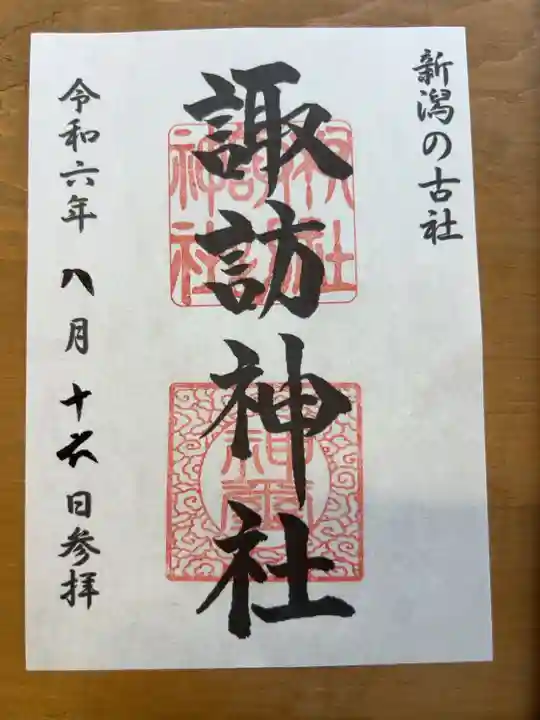 新潟の古社
諏訪神社
令和六年八月十六日参拝